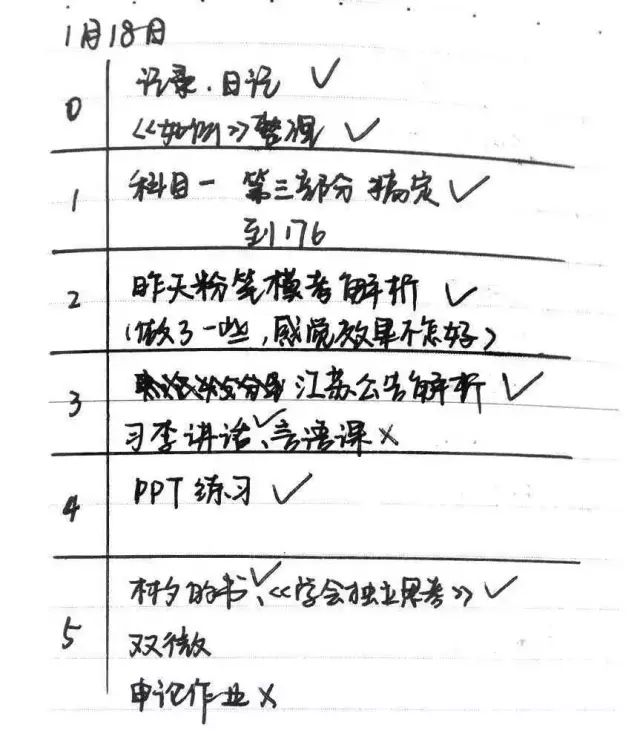 1月18日
0
记录.日记 ✓
《》整理 ✓
1
科目一 第三部分 搞定 ✓
到176
2
昨天粉笔模考解析 ✓
(做了一些,感觉效果不怎好)
3
江苏公告解析 ✓
习李讲话✓、言语课 ×
4
PPT 练习 ✓
5
的书✓、《学会独立思考》 ✓
双微
申论作业 ×